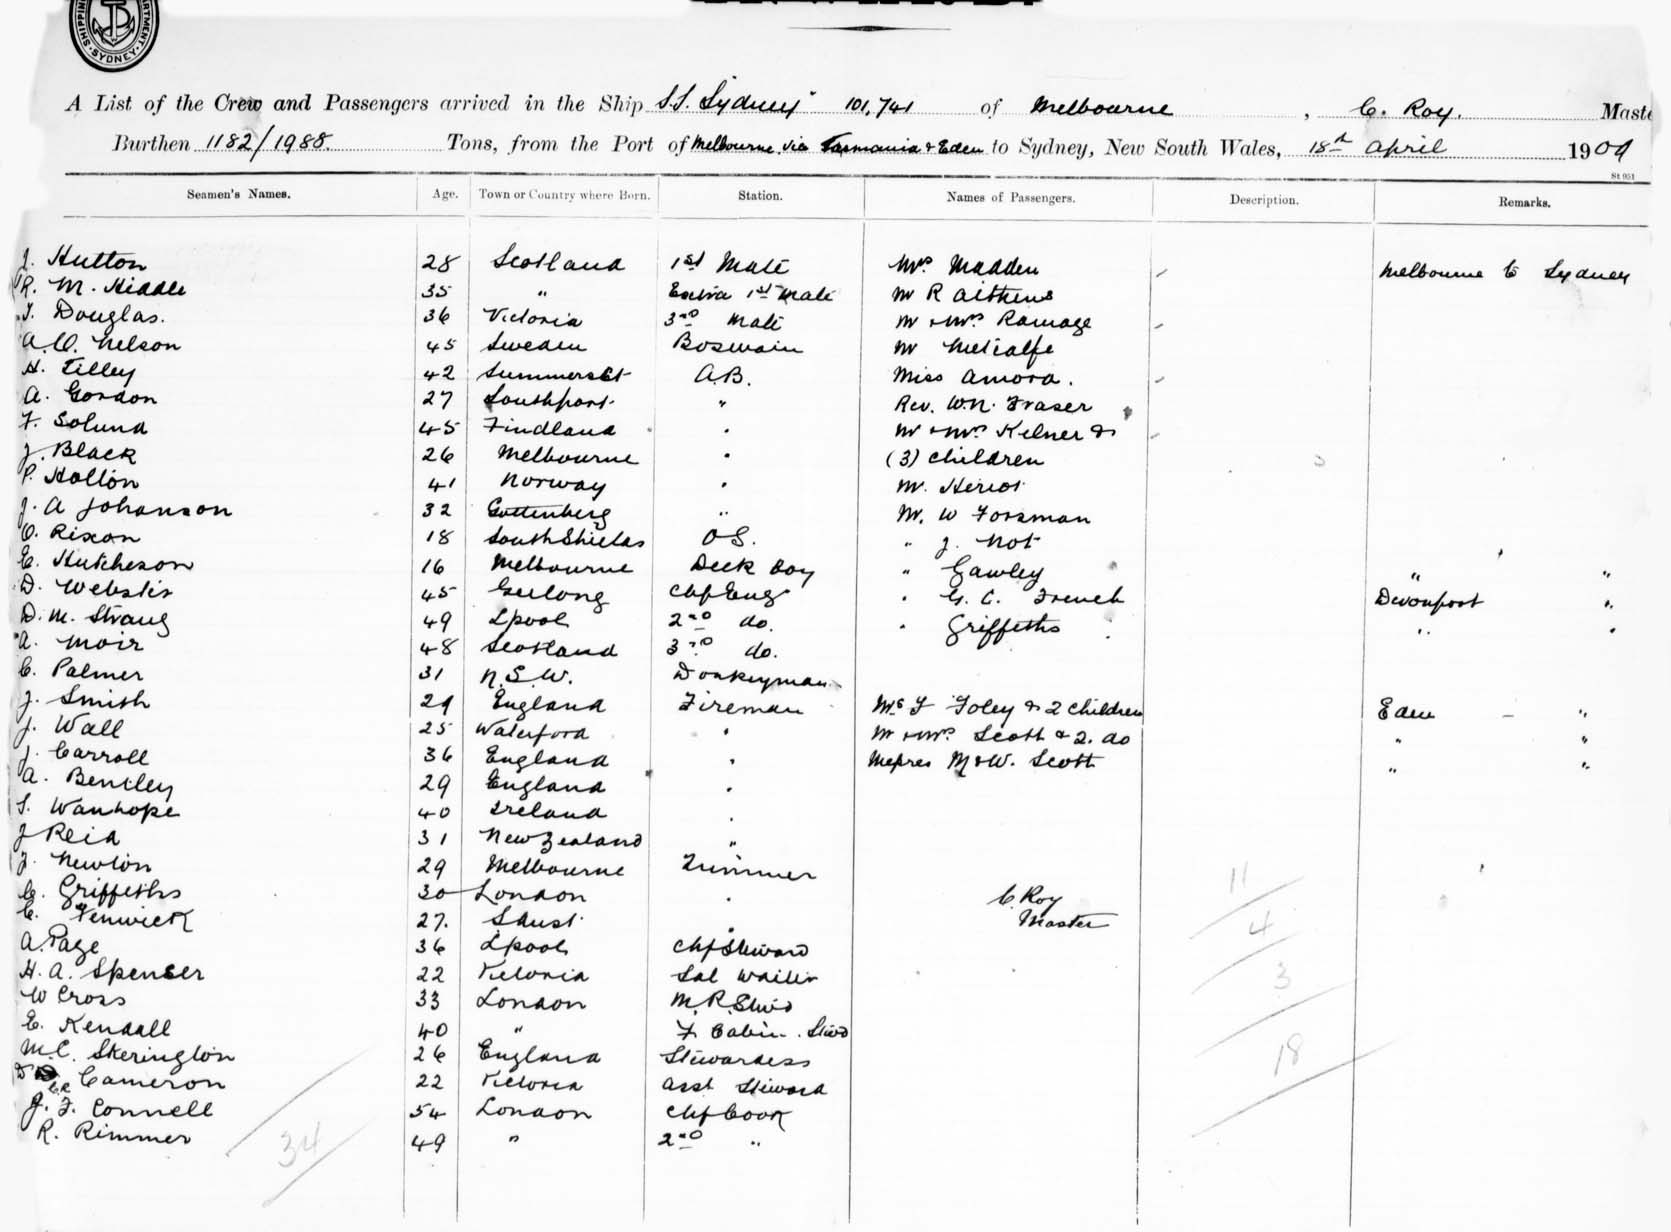 SHIPPING
DEPARTMENT
SYDNEY
A List of the Crew and Passengers arrived in the Ship S.S. Sydney" 101,741 of Melbourne, C. Roy. Maste
Burthen 1182/1988. Tons, from the Port of Melbourne via Tasmania & Eden to Sydney, New South Wales, 18th April 1909
St 951
Seamen's Names. Age. Town or Country where Born. Station. Names of Passengers. Description. Remarks.
J. Hutton 28 Scotland 1st Mate Mrs Madden Melbourne to Sydney
R. M. Kiddle 35 " Extra 1st Mate Mr R Aitkens
T. Douglas. 36 Victoria 3rd Mate Mr & Mrs Ramage
A. O. Nelson 45 Sweden Boswain Mr Metcalfe
H. Tilley 42 Summerset A.B. Miss Amora.
A. Gordon 27 Southport " Rev. W.N. Fraser
F. Solund 45 Findland " Mr & Mrs Kelner &
J. Black 26 Melbourne " (3) children
P. Holton 41 Norway " Mr. Heriot
J. A Johanson 32 Guttenberg " Mr. W Forsman
O. Rixon 18 South Shields O.S. " J. Not
E. Hutcheson 16 Melbourne Deck Boy " Gawley " "
D. Webster 45 Geelong Chf Eng " G. C. French Devonport "
D. M. Strang 49 Lpool 2nd do. " Griffeths " "
A. Moir 48 Scotland 3rd do.
C. Palmer 31 N.S.W. Donkeyman
J. Smith 29 England Fireman Mrs F Foley & 2 children Eden - "
J. Wall 25 Waterford " Mr & Mrs Scott & 2. do " "
J. Carroll 36 England " Messrs M & W. Scott " "
A. Bentley 29 England "
S. Wanhope 40 Ireland "
J Reid 31 New Zealand "
J. Newton 29 Melbourne Trimmer
C. Griffeths 30 London " C. Roy
C. Fenwick 27. " Master
A. Page 36 Lpool Chf Steward
H. A. Spenser 22 Victoria Sal Waiter
W Cross 33 London M.R. Stwd
E. Kendall 40 " F. Cabin. Stwd
M.C. Skerington 26 England Stewardess
D Cameron 22 Victoria Asst Steward
J. F. Connell 54 London Chf Cook
R. Rimmer 49 " 2nd "
34
11
4
3
18